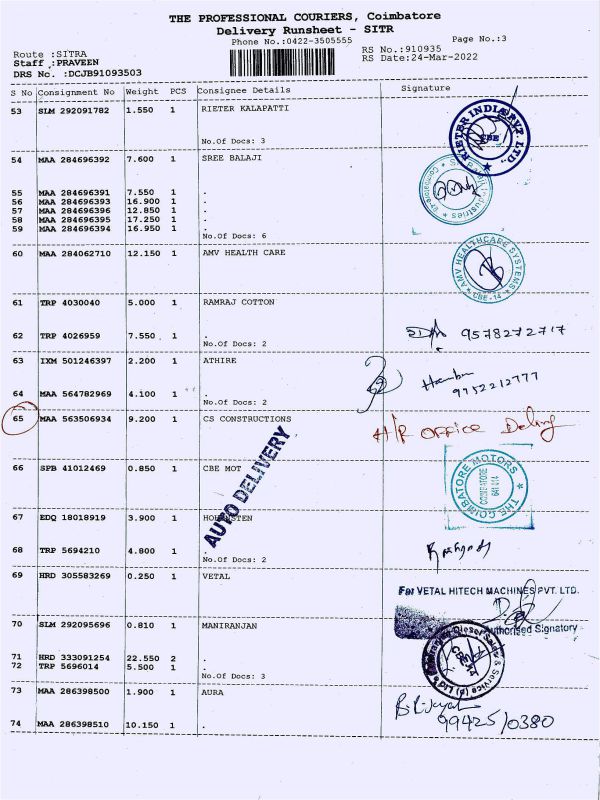 THE PROFESSIONAL COURIERS, Coimbatore
Delivery Runsheet - SITR
Phone No.:0422-3505555
Page No.:3
Route :SITRA
RS No.:910935
Staff :PRAVEEN
RS Date:24-Mar-2022
DRS No. :DCJB91093503
S No Consignment No Weight PCS Consignee Details Signature
53 SLM 292091782 1.550 1 RIETER KALAPATTI
RIETER INDIA PVT. LTD.
CBE
No.Of Docs: 3
54 MAA 284696392 7.600 1 SREE BALAJI
55 MAA 284696391 7.550 1 .
56 MAA 284696393 16.900 1 .
57 MAA 284696396 12.850 1 .
58 MAA 284696395 17.250 1 .
59 MAA 284696394 16.950 1 .
No.Of Docs: 6
60 MAA 284062710 12.150 1 AMV HEALTH CARE
AMV HEALTHCARE SYSTEMS
CBE-14
61 TRP 4030040 5.000 1 RAMRAJ COTTON
62 TRP 4026959 7.550 1 .
9578272717
No.Of Docs: 2
63 IXM 501246397 2.200 1 ATHIRE
9952212777
64 MAA 564782969 4.100 1 .
No.Of Docs: 2
65 MAA 563506934 9.200 1 CS CONSTRUCTIONS
H/R OFFICE
AUTO DELIVERY
66 SPB 41012469 0.850 1 CBE MOT
THE COIMBATORE MOTORS
COIMBATORE
641 014
67 EDQ 18018919 3.900 1
68 TRP 5694210 4.800 1 .
No.Of Docs: 2
69 HRD 305583269 0.250 1 VETAL
For VETAL HITECH MACHINES PVT. LTD.
Authorised Signatory
70 SLM 292095696 0.810 1 MANIRANJAN
71 HRD 333091254 22.550 2 .
72 TRP 5696014 5.500 1 .
No.Of Docs: 3
73 MAA 286398500 1.900 1 AURA
99425/0380
74 MAA 286398510 10.150 1 .